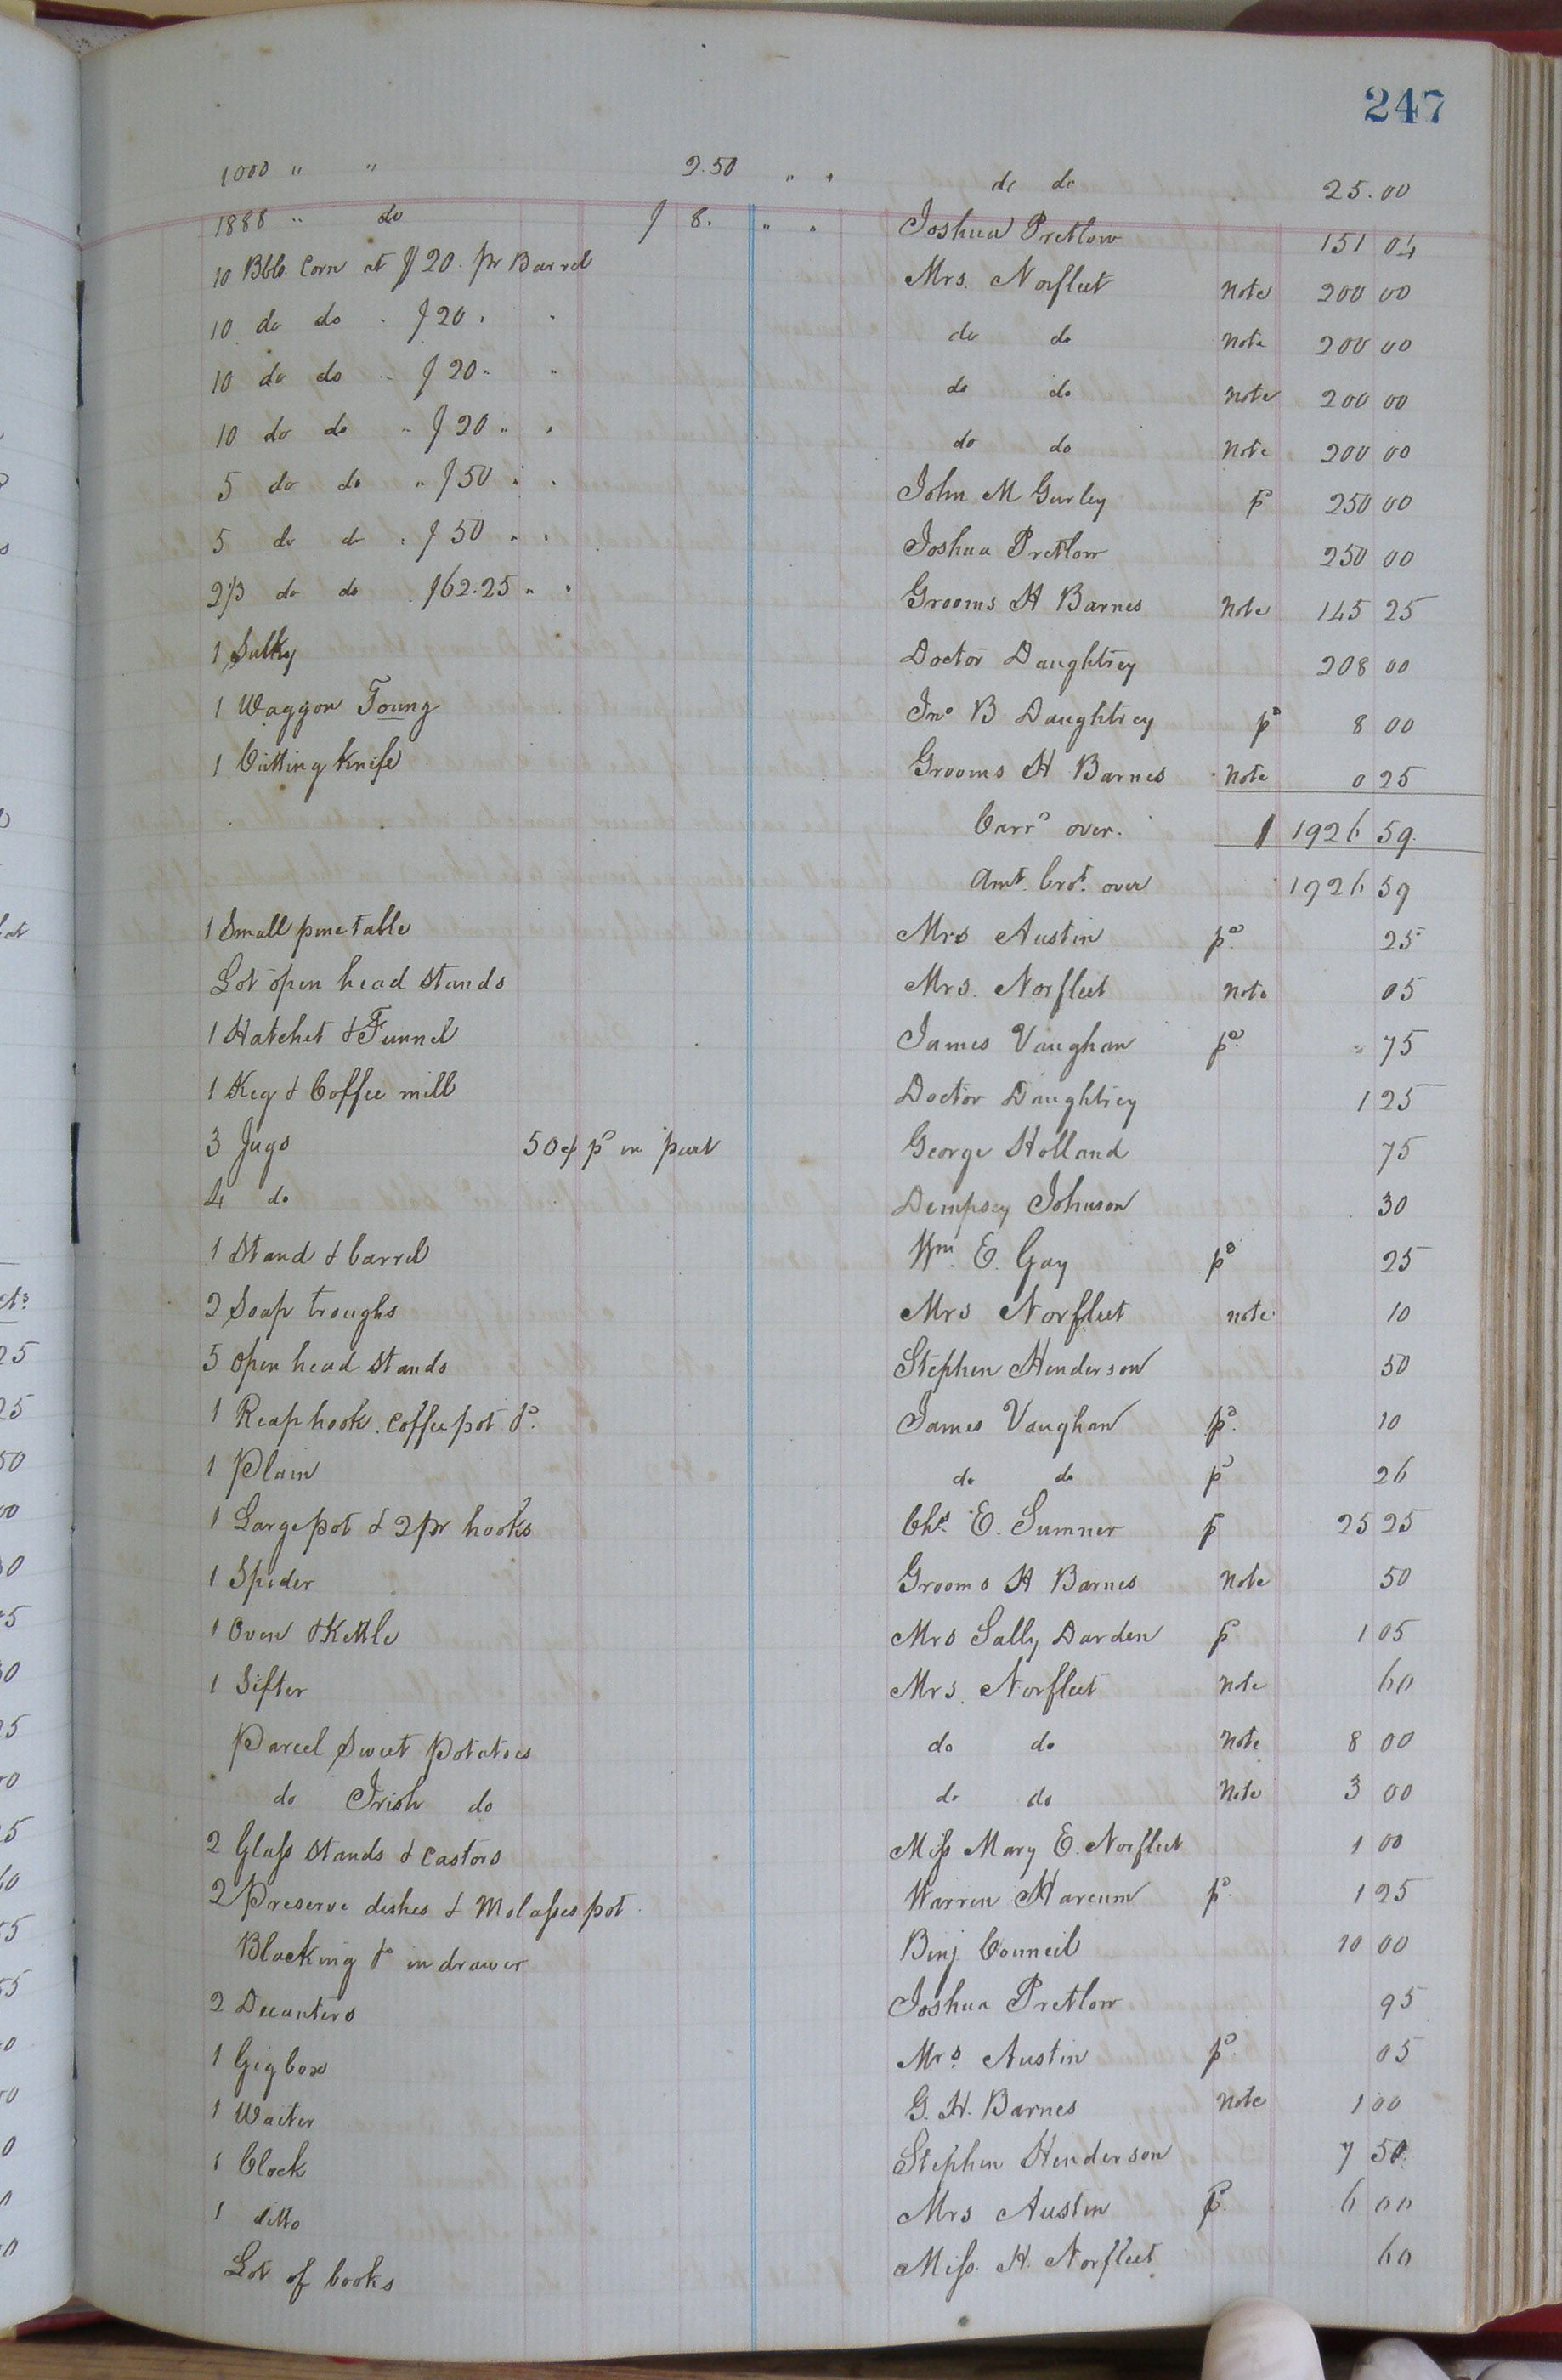 247
1000 " " 2.50 " " do do 25.00
1888 " do $ 8. " " Joshua Pretlow 151 04
10 Bbls. Corn at $20. pr Barrel Mrs. Norfleet Note 200 00
10 do do " $20 " " do do Note 200 00
10 do do " $20 " " do do Note 200 00
10 do do " $20 " " do do Note 200 00
5 do do " $50 " " John M Gurley pd 250 00
5 do do " $50 " " Joshua Pretlow 250 00
2 1/3 do do $62.25 " " Grooms H Barnes Note 145 25
1 Sulky Doctor Daughtrey 208 00
1 Waggon Toung Jno B Daughtrey pd 8 00
1 Cutting Knife Grooms H Barnes Note 0 25
Carrd over. $ 1926 59
Amt. brot. over 1926 59
1 Small pine table Mrs Austin pd. 25
Lot open head stands Mrs. Norfleet Note 05
1 Hatchet & Funnel James Vaughan pd. 75
1 Keg & Coffee mill Doctor Daughtrey 1 25
3 Jugs 50¢ pd in part George Holland 75
4 do Dempsey Johnson 30
1 Stand & barrel Wm. E. Gay pd 25
2 Soap troughs Mrs Norfleet note 10
5 Open head Stands Stephen Henderson 50
1 Reap hook. coffee pot &c. James Vaughan pd. 10
1 Plain do do pd 26
1 Large pot & 2 pr hooks Chs. E. Sumner pd 25 25
1 Spider Grooms H Barnes Note 50
1 Oven & Kettle Mrs Sally Darden pd 1 05
1 Sifter Mrs. Norfleet note 60
Parcel Sweet Potatoes do do Note 8 00
do Irish do do do Note 3 00
2 Glass Stands & Castors Miss Mary E. Norfleet 1 00
2 Preserve dishes & Molasses pot. Warren Harcum pd. 1 25
Blacking &c in drawer Binj Council 10 00
2 Decanters Joshua Pretlow 95
1 Gig box Mrs. Austin pd. 05
1 Waiter G. H. Barnes Note 1 00
1 Clock Stephen Henderson 7 50
1 ditto Mrs Austin pd. 6 00
Lot of books Miss. H. Norfleet 60